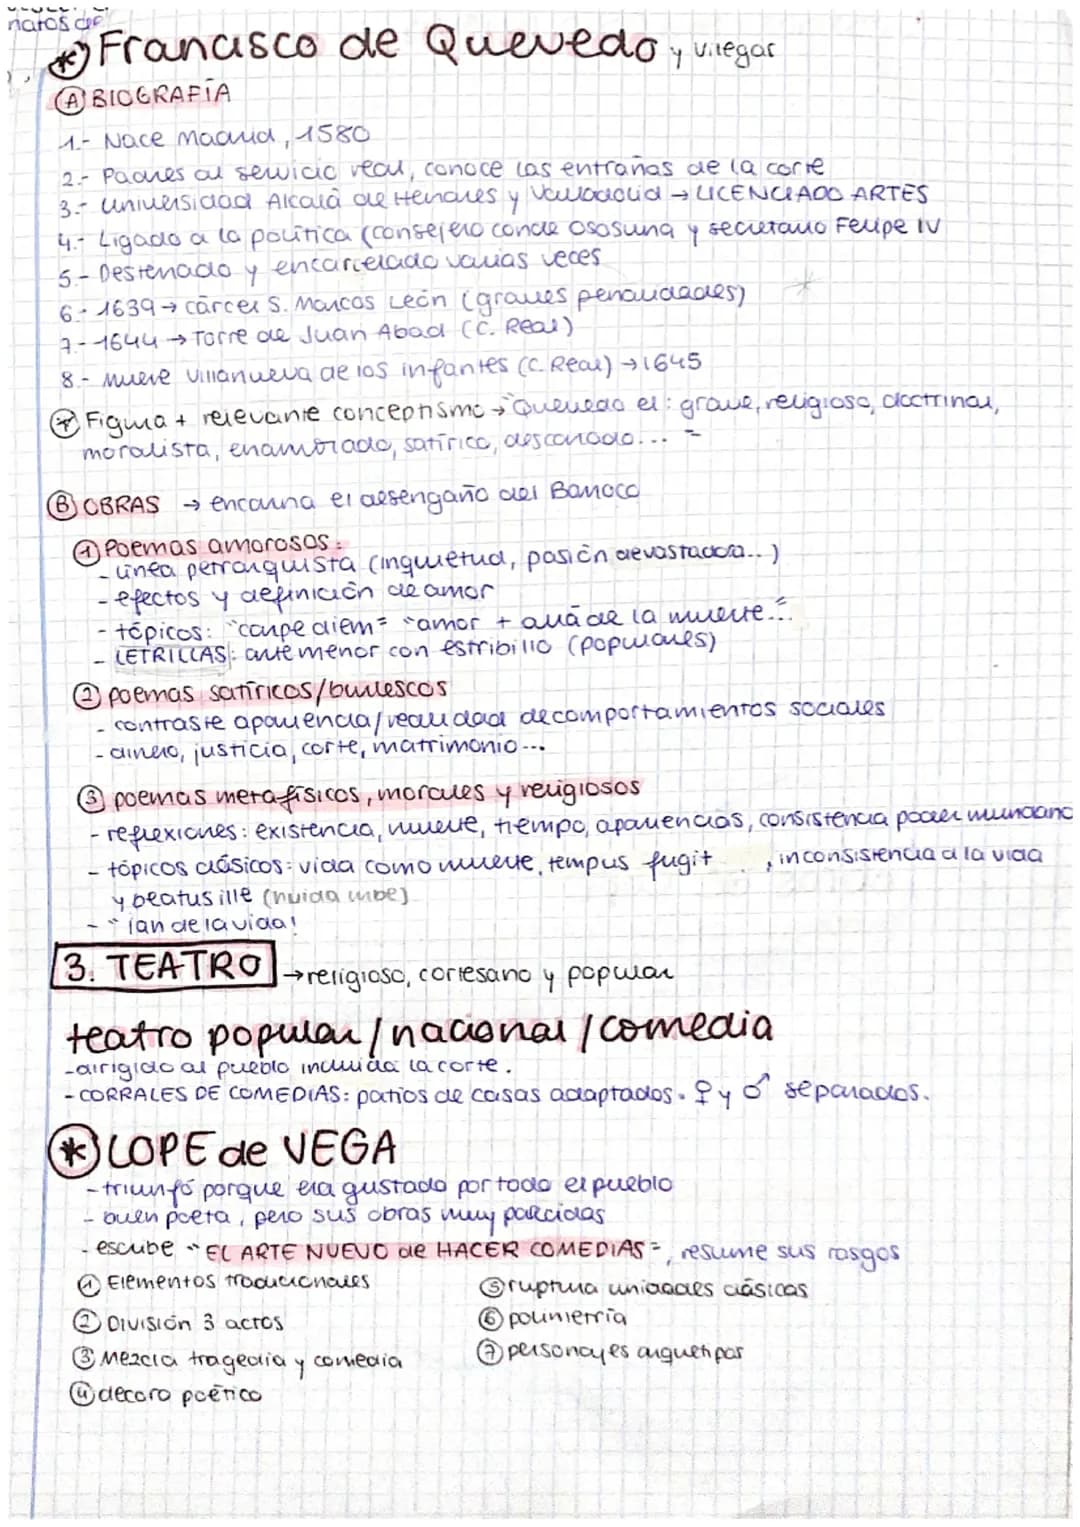 natos de
* Francisco de Quevedo y villegas
A BIOGRAFÍA
1.- Nace Madrid, 1580
2.- Padres al servicio real, conoce las entrañas de la corte
3.- Universidad Alcalá de Henares y Valladolid → LICENCIADO ARTES
4.- Ligado a la política (consejero conde Ososuna y secretario Felipe IV
5.- Desterrado y encarcelado varias veces
6.- 1639 → cárcel S. Marcos León (graves penalidades)
7.- 1644 → Torre de Juan Abad (C. Real)
8.- Muere Villanueva de los infantes (C. Real) → 1645
* Figura + relevante conceptismo → "Quevedo el: grave, religioso, doctrinal,
moralista, enamorado, satírico, descarado... "
B OBRAS → encarna el desengaño del Barroco
1 Poemas amorosos:
- línea petrarquista (inquietud, pasión devastadora...)
- efectos y definición de amor
- tópicos: "carpe diem" "amor + allá de la muerte..."
- LETRILLAS: arte menor con estribillo (populares)
2 poemas satíricos/burlescos
- contraste apariencia/realidad de comportamientos sociales
- dinero, justicia, corte, matrimonio...
3 poemas metafísicos, morales y religiosos
- reflexiones: existencia, muerte, tiempo, apariencias, consistencia poder mundano
- tópicos clásicos: vida como muerte, tempus fugit , inconsistencia d la vida
y beatus ille (huida urbe)
- "¡ah de la vida!
3. TEATRO → religioso, cortesano y popular
teatro popular / nacional / comedia
- dirigido al pueblo incluida la corte.
- CORRALES DE COMEDIAS: patios de casas adaptados. ♀ y ♂ separados.
* LOPE de VEGA
- triunfó porque era gustado por todo el pueblo
- buen poeta, pero sus obras muy parcidas
- escribe "EL ARTE NUEVO de HACER COMEDIAS", resume sus rasgos
1 Elementos tradicionales
2 División 3 actos
3 Mezcla tragedia y comedia
4 decoro poético
5 ruptura unidades clásicas
6 polimetría
7 personajes arquetipos